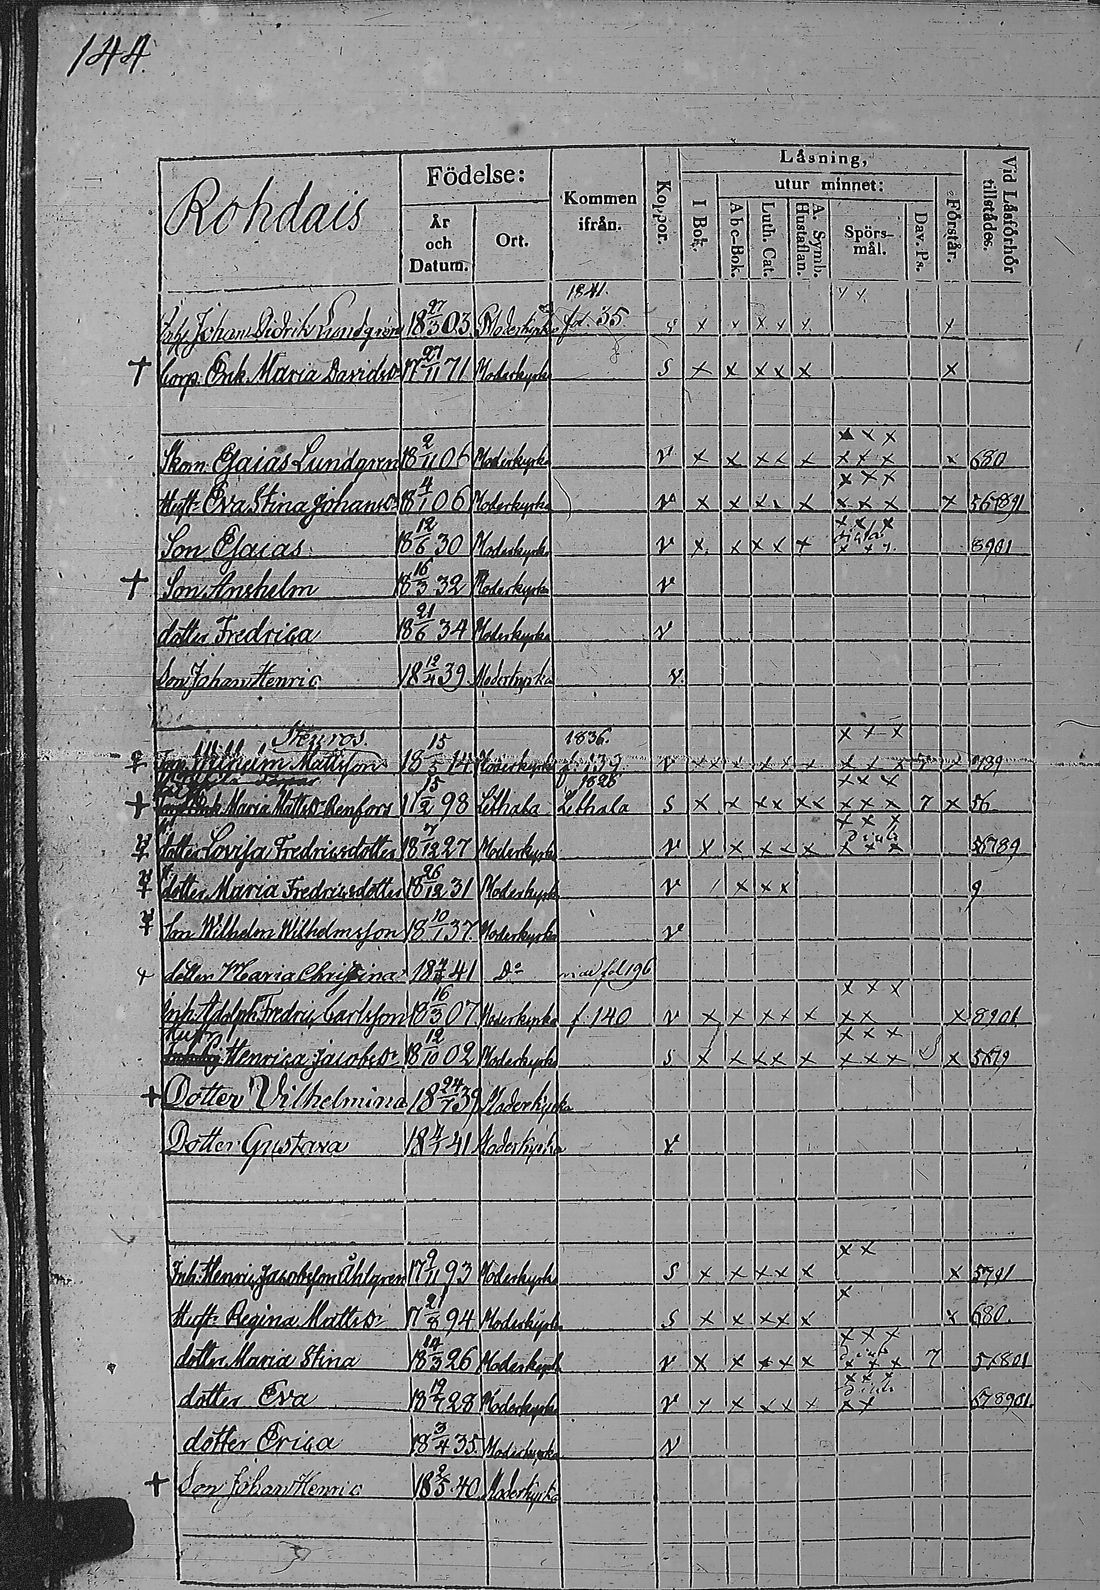 144.
Rohdais
Födelse:
År och Datum.
Ort.
Kommen ifrån.
Koppor.
Läsning,
I Bok.
utur minnet:
Abc-Bok.
Luth. Cat.
A. Symb. Hustaflan.
Spörsmål.
Dav. Ps.
Förstår.
Vid Läsförhör tillstädes.
1841.
Inh. Johan Didrik Lundgren 18 27/3 03 Moderkyrka fol. 35 s x x x x x x
† Corp. Enk. Maria Davidsdr 17 27/11 71 Moderkyrka s x x x x x x
x x x
Skom. Esaias Lundgren 18 2/11 06 Moderkyrka v x x x x x x x x x 680
x x x
Hust. Eva Stina Johansdr 18 4/1 06 Moderkyrka v x x x x x x x x x 567891
x x x
Son Esaias 18 12/6 30 Moderkyrka v x x x x x x x x 8901
† Son Anshelm 18 16/3 32 Moderkyrka v
dotter Fredrica 18 21/6 34 Moderkyrka v
Son Johan Henric 18 19/4 39 Moderkyrka v
1836.
x x x
Wilhelm Mattsson 18 15/5 14 Moderkyrka f. 139 v x x x x x x x x 789
1828
x x x
† Enk. Maria Mattsdr Renfors 17 15/2 98 Lethala Lethala s x x x x x x x x x 7 x 56
x x x
dotter Lovisa Fredricsdotter 18 7/12 27 Moderkyrka v x x x x x x x x 56789
dotter Maria Fredricsdotter 18 26/12 31 Moderkyrka v x x x 9
Son Wilhelm Wilhelmsson 18 10/1 37 Moderkyrka v
dotter Maria Christina 41 Do fol 196
x x x
Inh. Adolph Fredric Carlsson 18 16/3 07 Moderkyrka f. 140 v x x x x x x x x 8901
Hust.
x x x
Henrica Jacobsdr 18 12/10 02 Moderkyrka s x x x x x x x x x 5679
† Dotter Vilhelmina 18 24/7 39 Moderkyrka
Dotter Gustava 41 Moderkyrka v
x x
Inh. Henric Jacobsson Åhlgren 17 9/11 93 Moderkyrka s x x x x x x 5791
x
Hust. Regina Mattsdr 17 21/8 94 Moderkyrka s x x x x x x 680
x x x
dotter Maria Stina 26 Moderkyrka v x x x x x x x x 7 56801
x x x
dotter Eva 28 Moderkyrka v x x x x x x x 678901
dotter Erica 18 3/4 35 Moderkyrka v
† Son Johan Henric 40 Moderkyrka